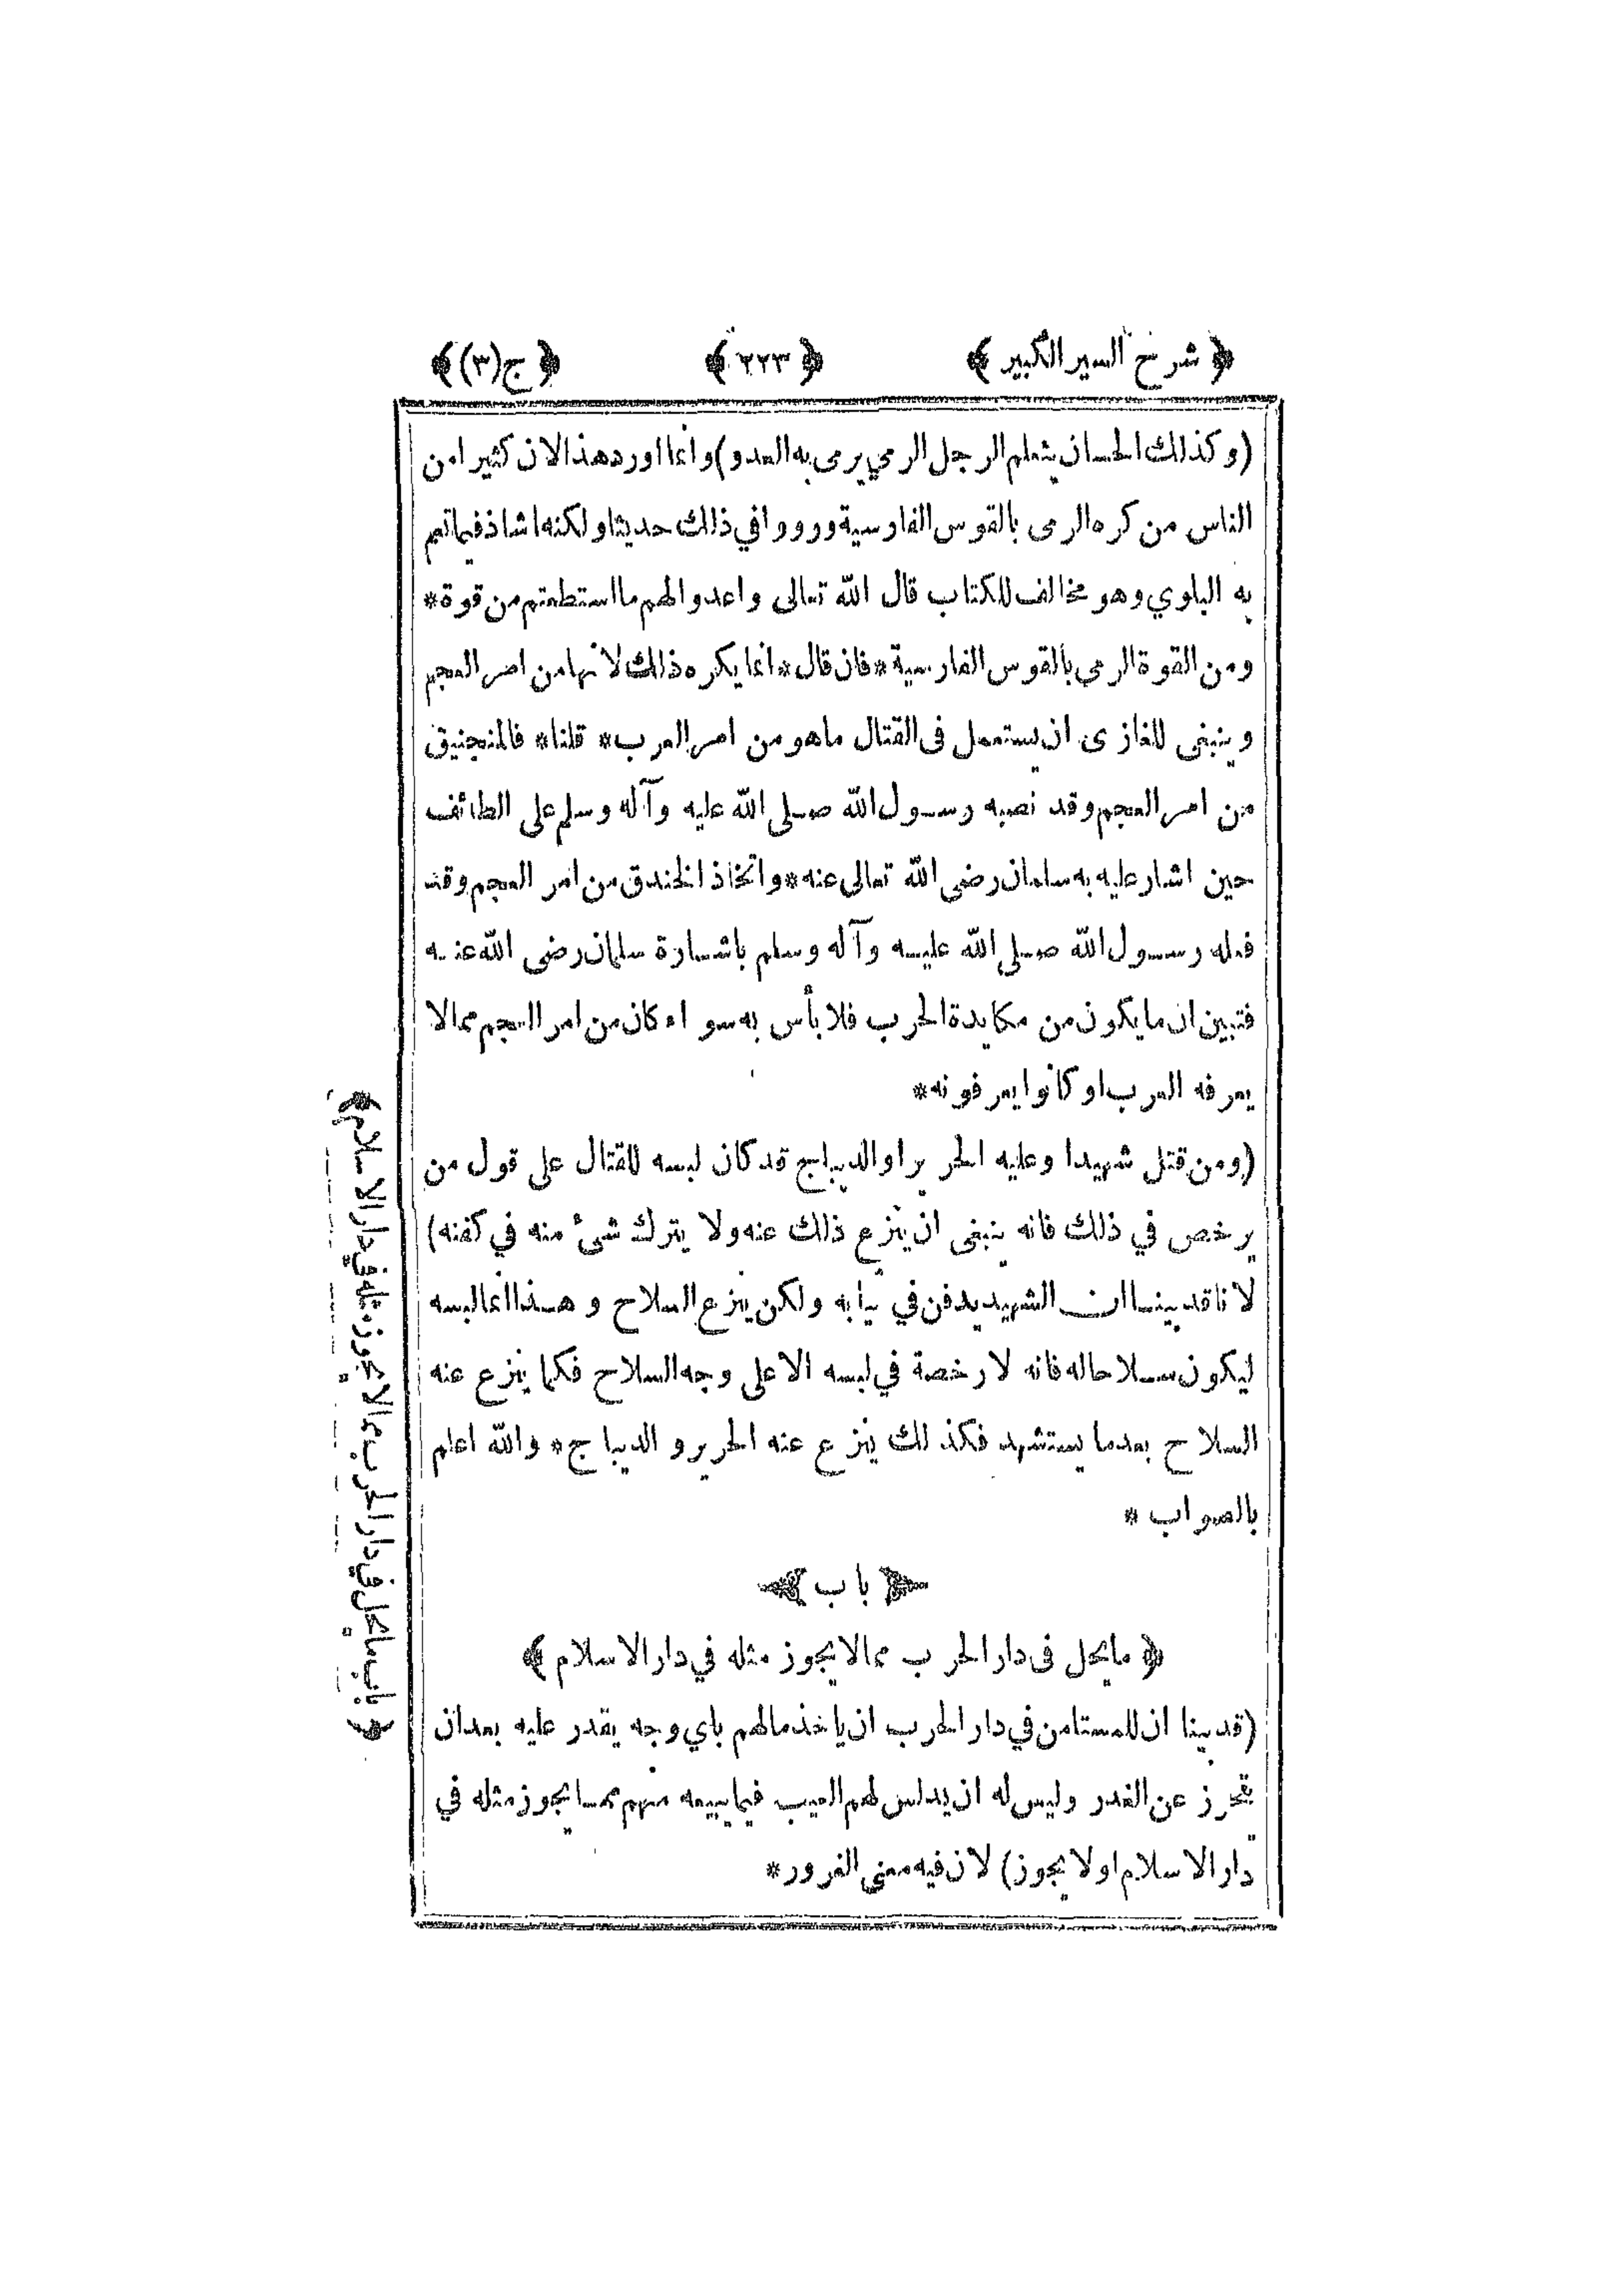 ﴿ شرح السير الكبير ﴾ ﴿ ٢٢٣ ﴾ ﴿ ج(٣) ﴾
(وكذلك الحسن ان يتعلم الرجل الرمي يرمى به العدو) وانما اورد هذا لان كثيرا من
الناس من كره الرمى بالقوس الفارسية ورووا في ذلك حديثا ولكنه شاذ فيما تعم
به البلوي وهو مخالف للكتاب قال الله تعالى واعدوا لهم ما استطعتم من قوة *
ومن القوة الرمى بالقوس الفارسية * فان قال * انما يكره ذلك لانها من امر العجم
وينبغى للغازى ان يستعمل فى القتال ماهو من امر العرب * قلنا * فالمنجنيق
من امر العجم وقد نصبه رسول الله صلى الله عليه وآله وسلم على الطائف
حين اشار عليه به سلمان رضى الله تعالى عنه * واتخاذ الخندق من امر العجم وقد
فعله رسول الله صلى الله عليه وآله وسلم باشارة سلمان رضى الله عنه
فتبين ان مايكون من مكايدة الحرب فلا بأس به سواء كان من امر العجم ممالا
يعرفه العرب او كانوا يعرفونه *
(ومن قتل شهيدا وعليه الحرير او الديباج قد كان لبسه للقتال على قول من
يرخص في ذلك فانه ينبغى ان ينزع ذلك عنه ولا يترك شئ منه في كفنه)
لانا قد بينا ان الشهيد يدفن في ثيابه ولكن ينزع السلاح وهذا انما لبسه
ليكون سلاحا له فانه لا رخصة في لبسه الا على وجه السلاح فكما ينزع عنه
السلاح بعدما يستشهد فكذلك ينزع عنه الحرير والديباج * والله اعلم
بالصواب *
﴿ باب ﴾
﴿ مايحل فى دار الحرب ممالا يجوز مثله في دار الاسلام ﴾
(قد بينا ان للمستامن في دار الحرب ان ياخذ مالهم باي وجه يقدر عليه بعد ان
يتحرز عن الغدر وليس له ان يدلس لهم العيب فيما يبيعه منهم مما يجوز مثله في
دار الاسلام او لا يجوز) لان فيه معنى الغرور *
﴿ باب مايحل في دار الحرب ممالا يجوز مثله في دار الاسلام ﴾